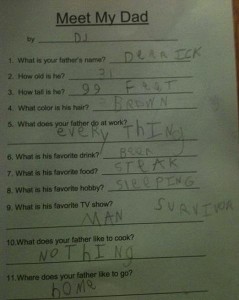 Meet My Dad
by DJ
1. What is your father's name? DERRICK
2. How old is he? 31
3. How tall is he? 99 FEET
4. What color is his hair? BROWN
5. What does your father do at work?
everything
6. What is his favorite drink? BEER
7. What is his favorite food? STEAK
8. What is his favorite hobby? SLEEPING
9. What is his favorite TV show? SURVIVOR
MAN
10.What does your father like to cook?
NOThING
11.Where does your father like to go?
home